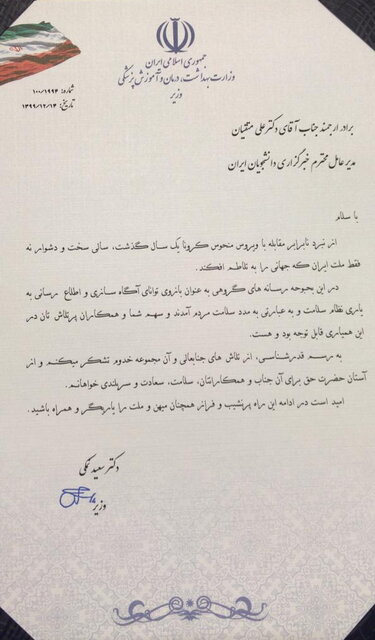 جمهوری اسلامی ایران
وزارت بهداشت، درمان و آموزش پزشکی
وزیر
شماره: ۱۰۰/۱۹۹۴
تاریخ: ۱۳۹۹/۱۲/۱۴
برادر ارجمند جناب آقای دکتر علی متقیان
مدیر عامل محترم خبرگزاری دانشجویان ایران
با سلام
از نبرد نابرابر مقابله با ویروس منحوس کرونا یک سال گذشت، سالی سخت و دشوار نه
فقط ملت ایران که جهانی را به تلاطم افکند.
در این بحبوحه رسانه های گروهی به عنوان بازوی توانای آگاه سازی و اطلاع رسانی به
یاری نظام سلامت و به عبارتی به مدد سلامت مردم آمدند و سهم شما و همکاران پرتلاش تان در
این همیاری قابل توجه بود و هست.
به رسم قدرشناسی، از تلاش های جنابعالی و آن مجموعه خدوم تشکر میکنم و از
آستان حضرت حق برای آن جناب و همکارانتان، سلامت، سعادت و سربلندی خواهانم.
امید است در ادامه این راه پرنشیب و فراز همچنان میهن و ملت را یاریگر و همراه باشید.
دکتر سعید نمکی
وزیر